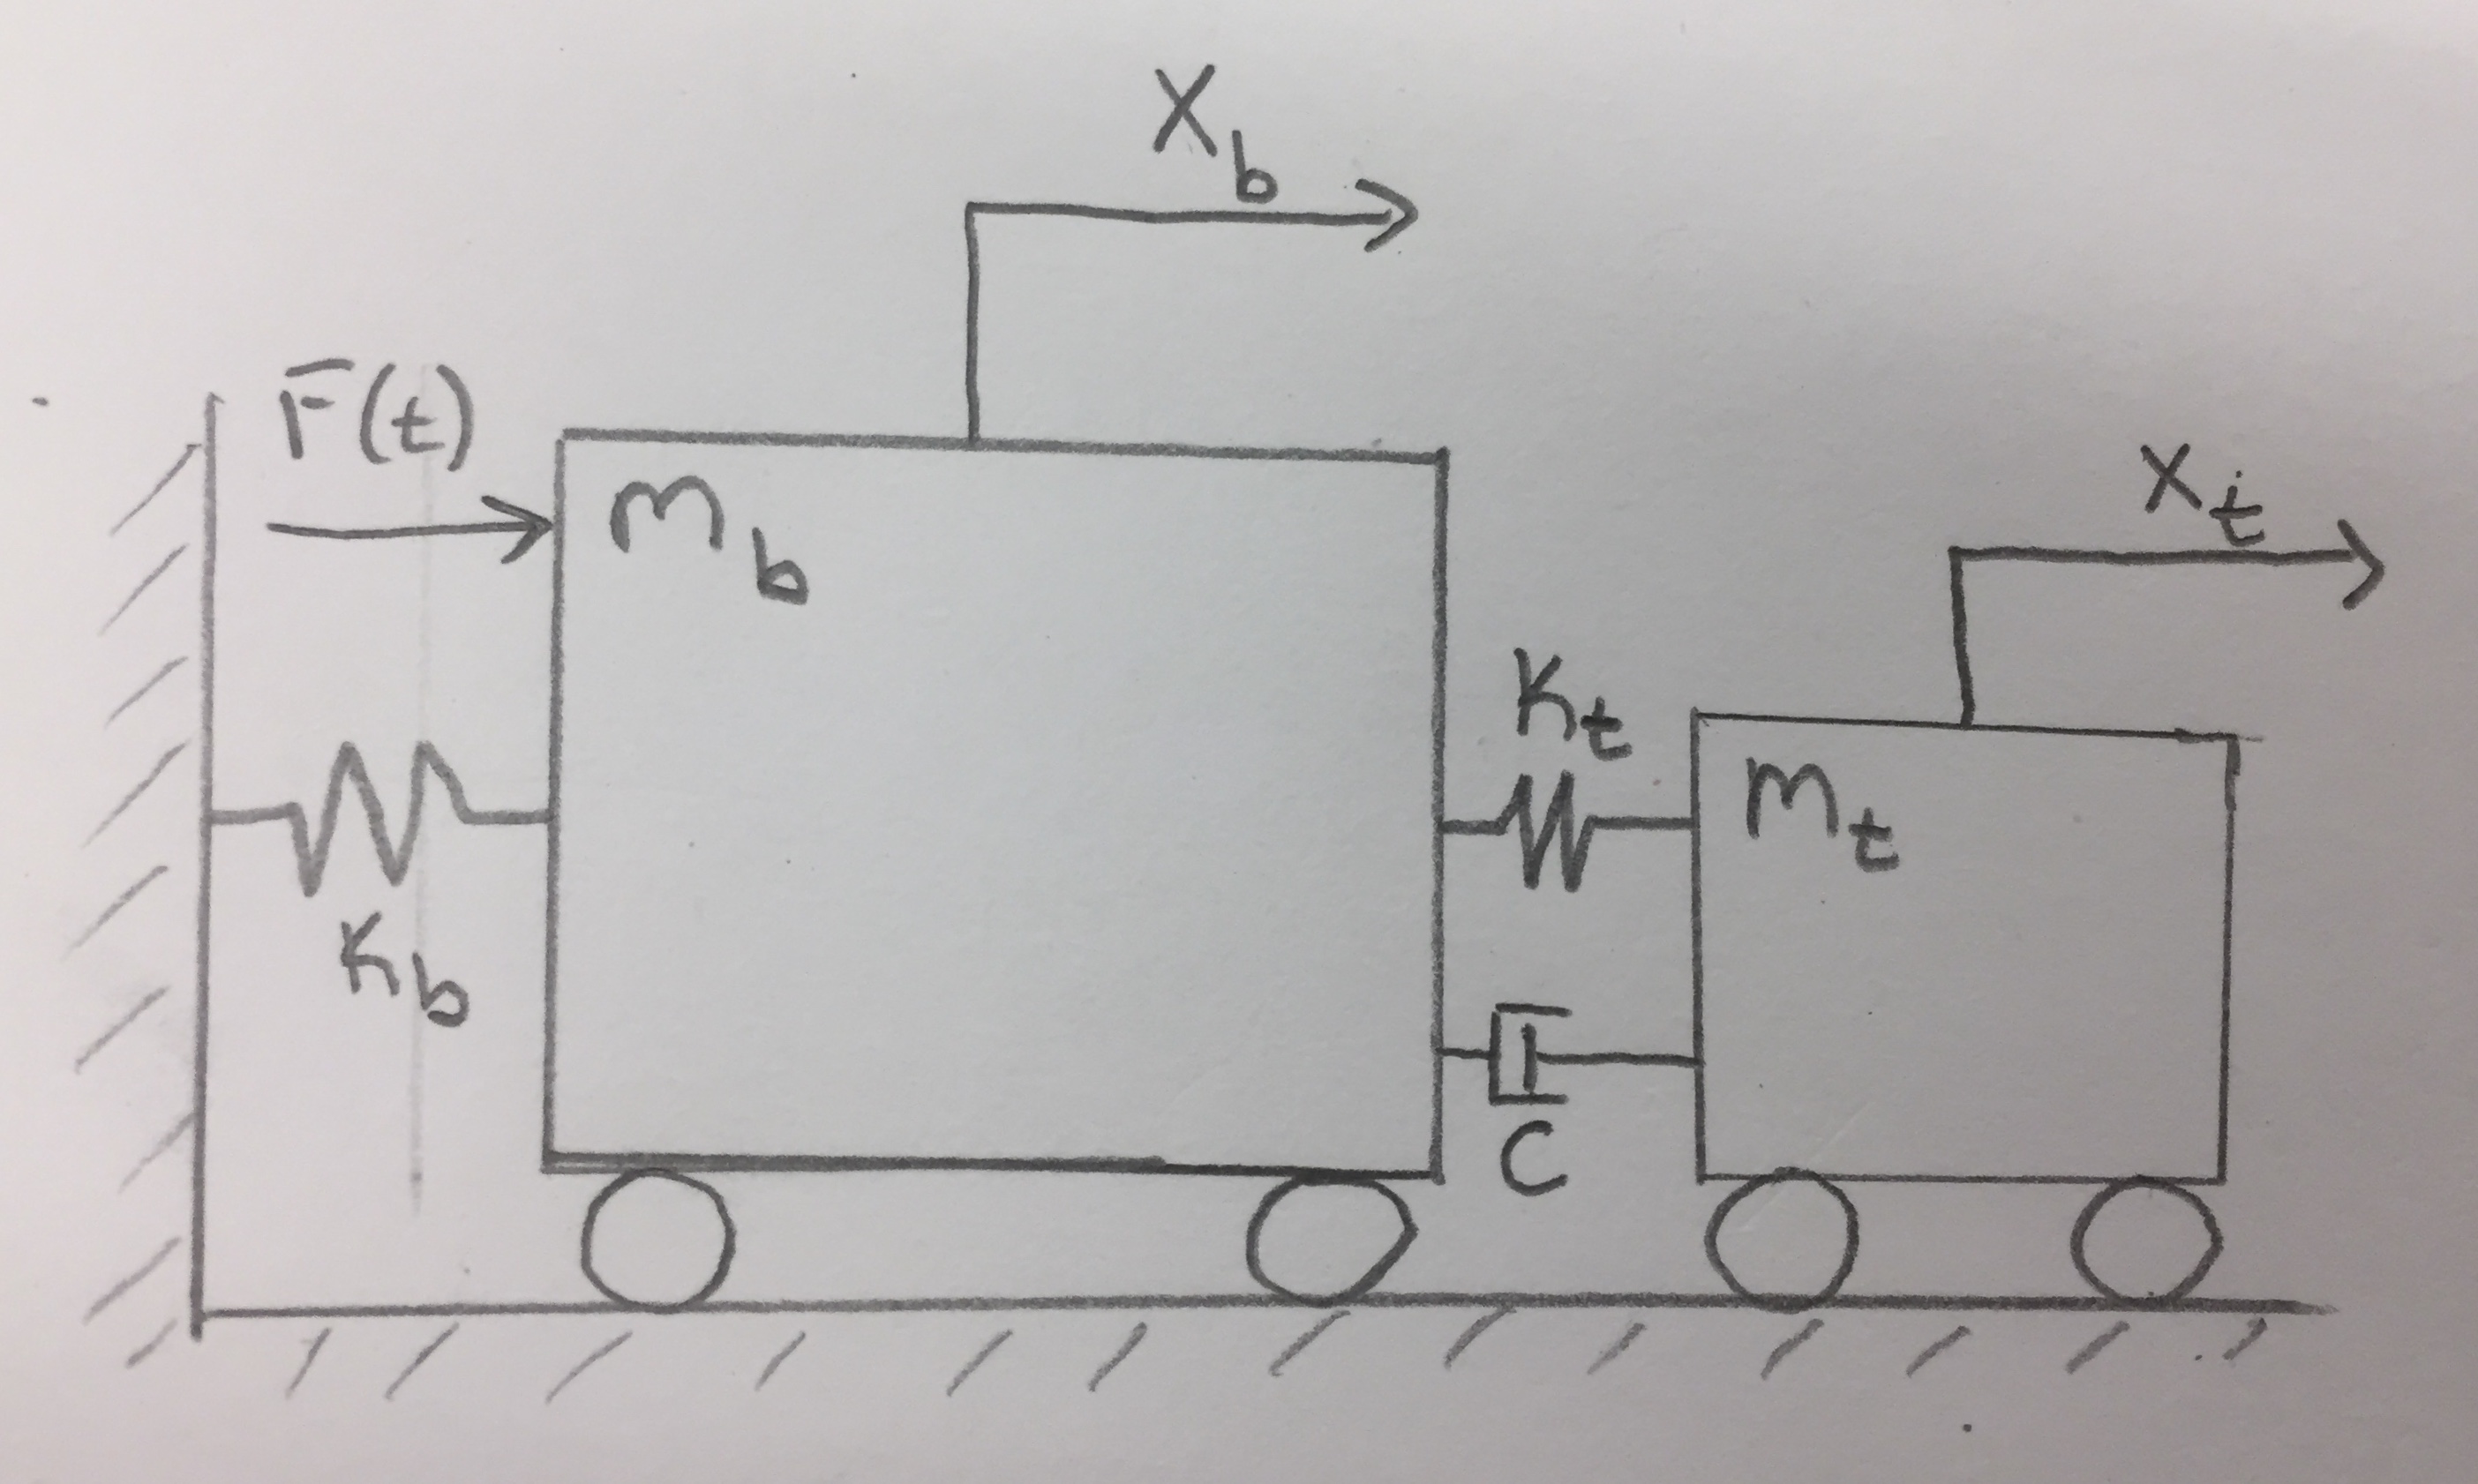 X_b
F(t)
m_b
X_t
K_t
m_t
K_b
C